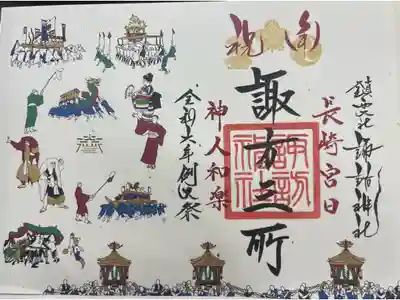 鎮西大社 諏訪神社
長崎宮日
諏方三所
諏訪神社
神人和楽
令和六年例大祭